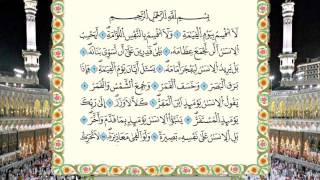 بِسْمِ اللَّهِ الرَّحْمَٰنِ الرَّحِيمِ
لَا أُقْسِمُ بِيَوْمِ الْقِيَٰمَةِ وَلَا أُقْسِمُ بِالنَّفْسِ اللَّوَّامَةِ أَيَحْسَبُ
الْإِنسَٰنُ أَلَّن نَّجْمَعَ عِظَامَهُ بَلَىٰ قَٰدِرِينَ عَلَىٰ أَن نُّسَوِّيَ بَنَانَهُ
بَلْ يُرِيدُ الْإِنسَٰنُ لِيَفْجُرَ أَمَامَهُ يَسْـَٔلُ أَيَّانَ يَوْمُ الْقِيَٰمَةِ فَإِذَا
بَرِقَ الْبَصَرُ وَخَسَفَ الْقَمَرُ وَجُمِعَ الشَّمْسُ وَالْقَمَرُ
يَقُولُ الْإِنسَٰنُ يَوْمَئِذٍ أَيْنَ الْمَفَرُّ كَلَّا لَا وَزَرَ إِلَىٰ رَبِّكَ
يَوْمَئِذٍ الْمُسْتَقَرُّ يُنَبَّؤُا الْإِنسَٰنُ يَوْمَئِذٍ بِمَا قَدَّمَ وَأَخَّرَ
بَلِ الْإِنسَٰنُ عَلَىٰ نَفْسِهِ بَصِيرَةٌ وَلَوْ أَلْقَىٰ مَعَاذِيرَهُ لَا تُحَرِّكْ